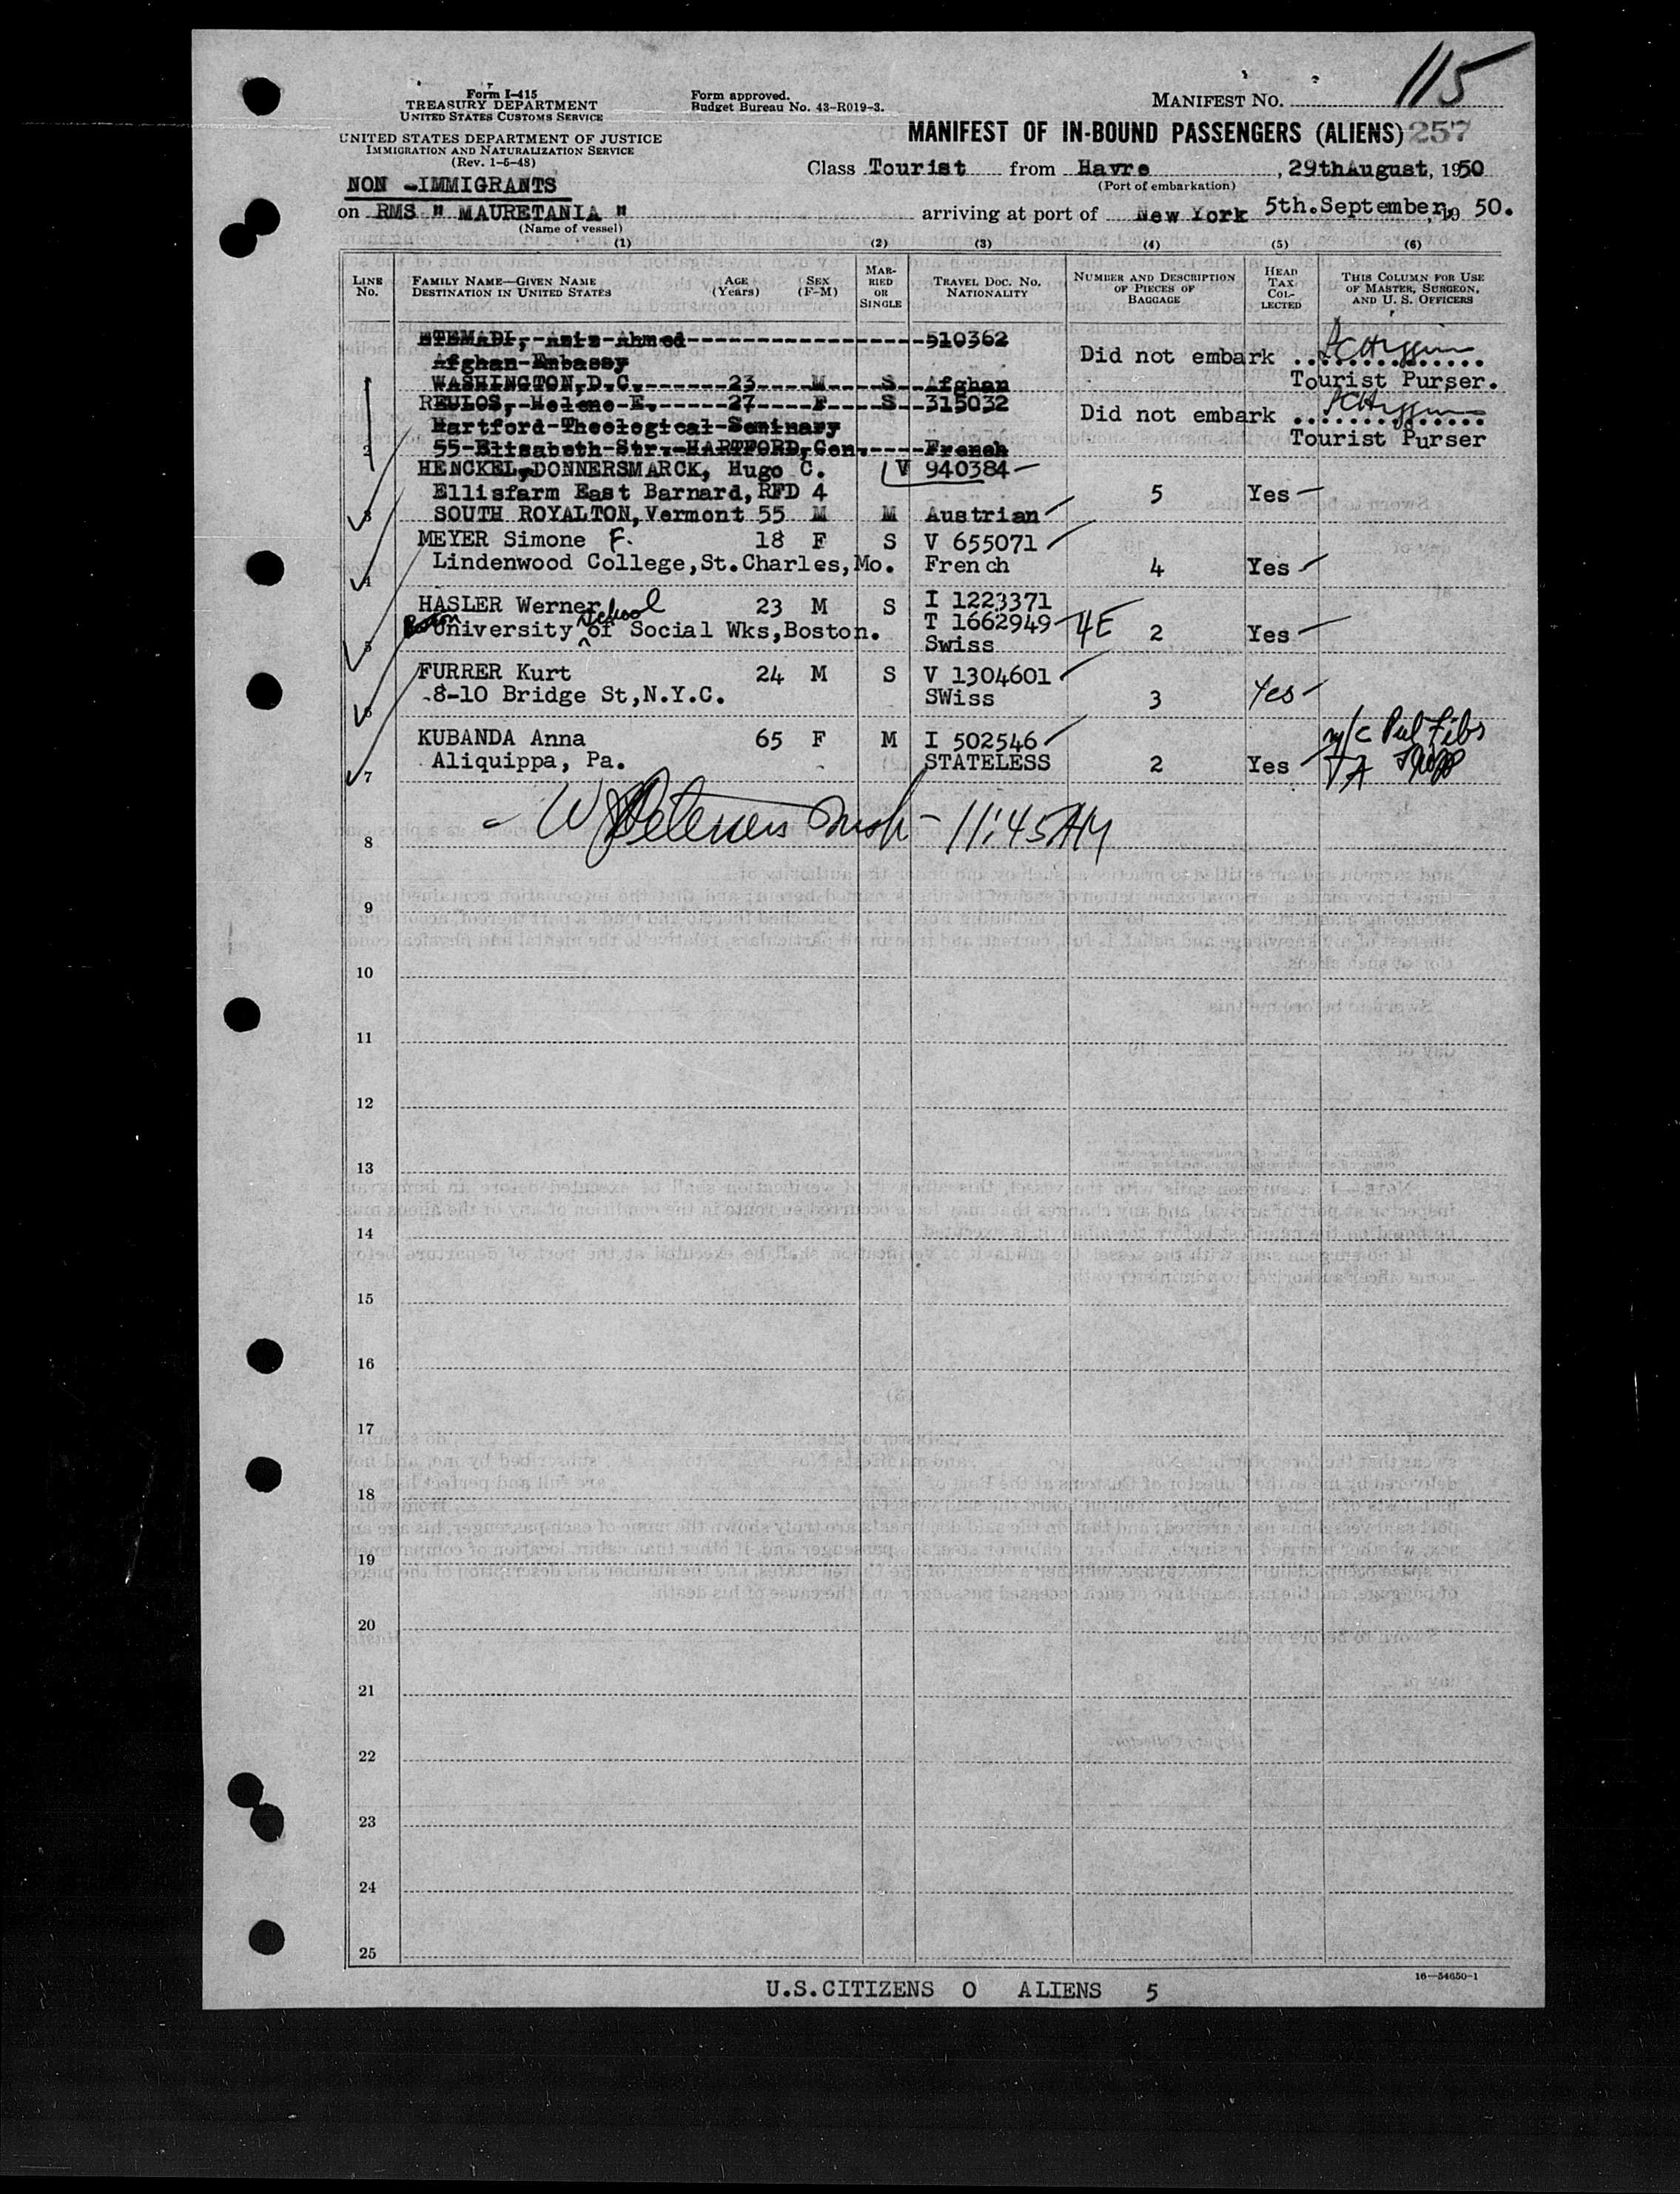 115
Form I-415
TREASURY DEPARTMENT
UNITED STATES CUSTOMS SERVICE
Form approved.
Budget Bureau No. 43-R019-3.
MANIFEST NO.
UNITED STATES DEPARTMENT OF JUSTICE
IMMIGRATION AND NATURALIZATION SERVICE
(Rev. 1-6-48)
MANIFEST OF IN-BOUND PASSENGERS (ALIENS) 257
Class Tourist from Havre, 29thAugust, 1950
(Port of embarkation)
NON -IMMIGRANTS
on RMS " MAURETANIA " arriving at port of New York 5th.September, 19 50.
(Name of vessel)
(1) (2) (3) (4) (5) (6)
LINE No. FAMILY NAME—GIVEN NAME DESTINATION IN UNITED STATES AGE (Years) SEX (F-M) MARRIED OR SINGLE TRAVEL DOC. NO. NATIONALITY NUMBER AND DESCRIPTION OF PIECES OF BAGGAGE HEAD TAX COLLECTED THIS COLUMN FOR USE OF MASTER, SURGEON, AND U. S. OFFICERS
ETEMADI, Aziz Ahmed 510362
Afghan Embassy Did not embark
WASHINGTON,D.C. 23 M S Afghan Tourist Purser.
REULOS, Helene E. 27 F S 315032
Hartford Theological Seminary Did not embark
2 55 Elizabeth Str. HARTFORD,Con. French Tourist Purser
HENCKEL,DONNERSMARCK, Hugo C. V 940384
Ellisfarm East Barnard, RFD 4 5 Yes
3 SOUTH ROYALTON,Vermont 55 M M Austrian
MEYER Simone F. 18 F S V 655071
4 Lindenwood College,St.Charles,Mo. French 4 Yes
HASLER Werner 23 M S I 1223371
Boston University School of Social Wks,Boston. T 1662949 4E 2 Yes
5 Swiss
FURRER Kurt 24 M S V 1304601
6 8-10 Bridge St,N.Y.C. SWiss 3 Yes
KUBANDA Anna 65 F M I 502546
7 Aliquippa, Pa. STATELESS 2 Yes
11:45AM
8
9
10
11
12
13
14
15
16
17
18
19
20
21
22
23
24
25
16—54650-1
U.S.CITIZENS 0 ALIENS 5